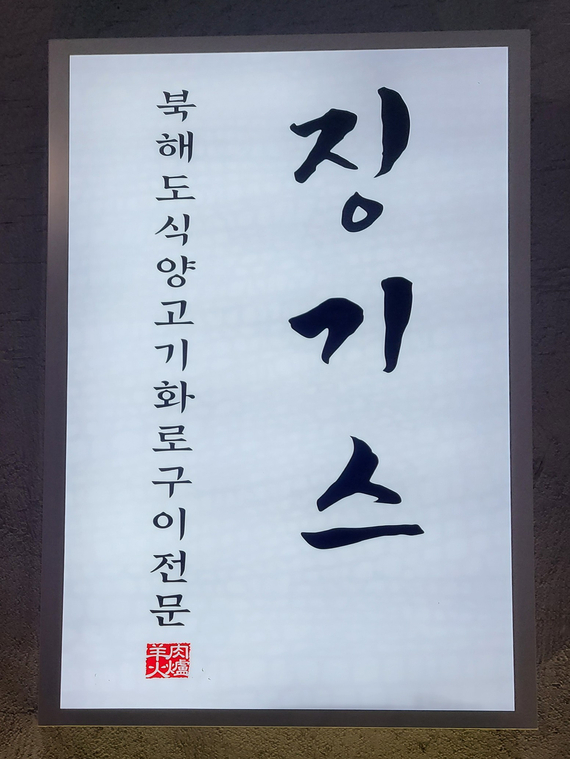 징기스
북해도식양고기화로구이전문
羊肉火爐